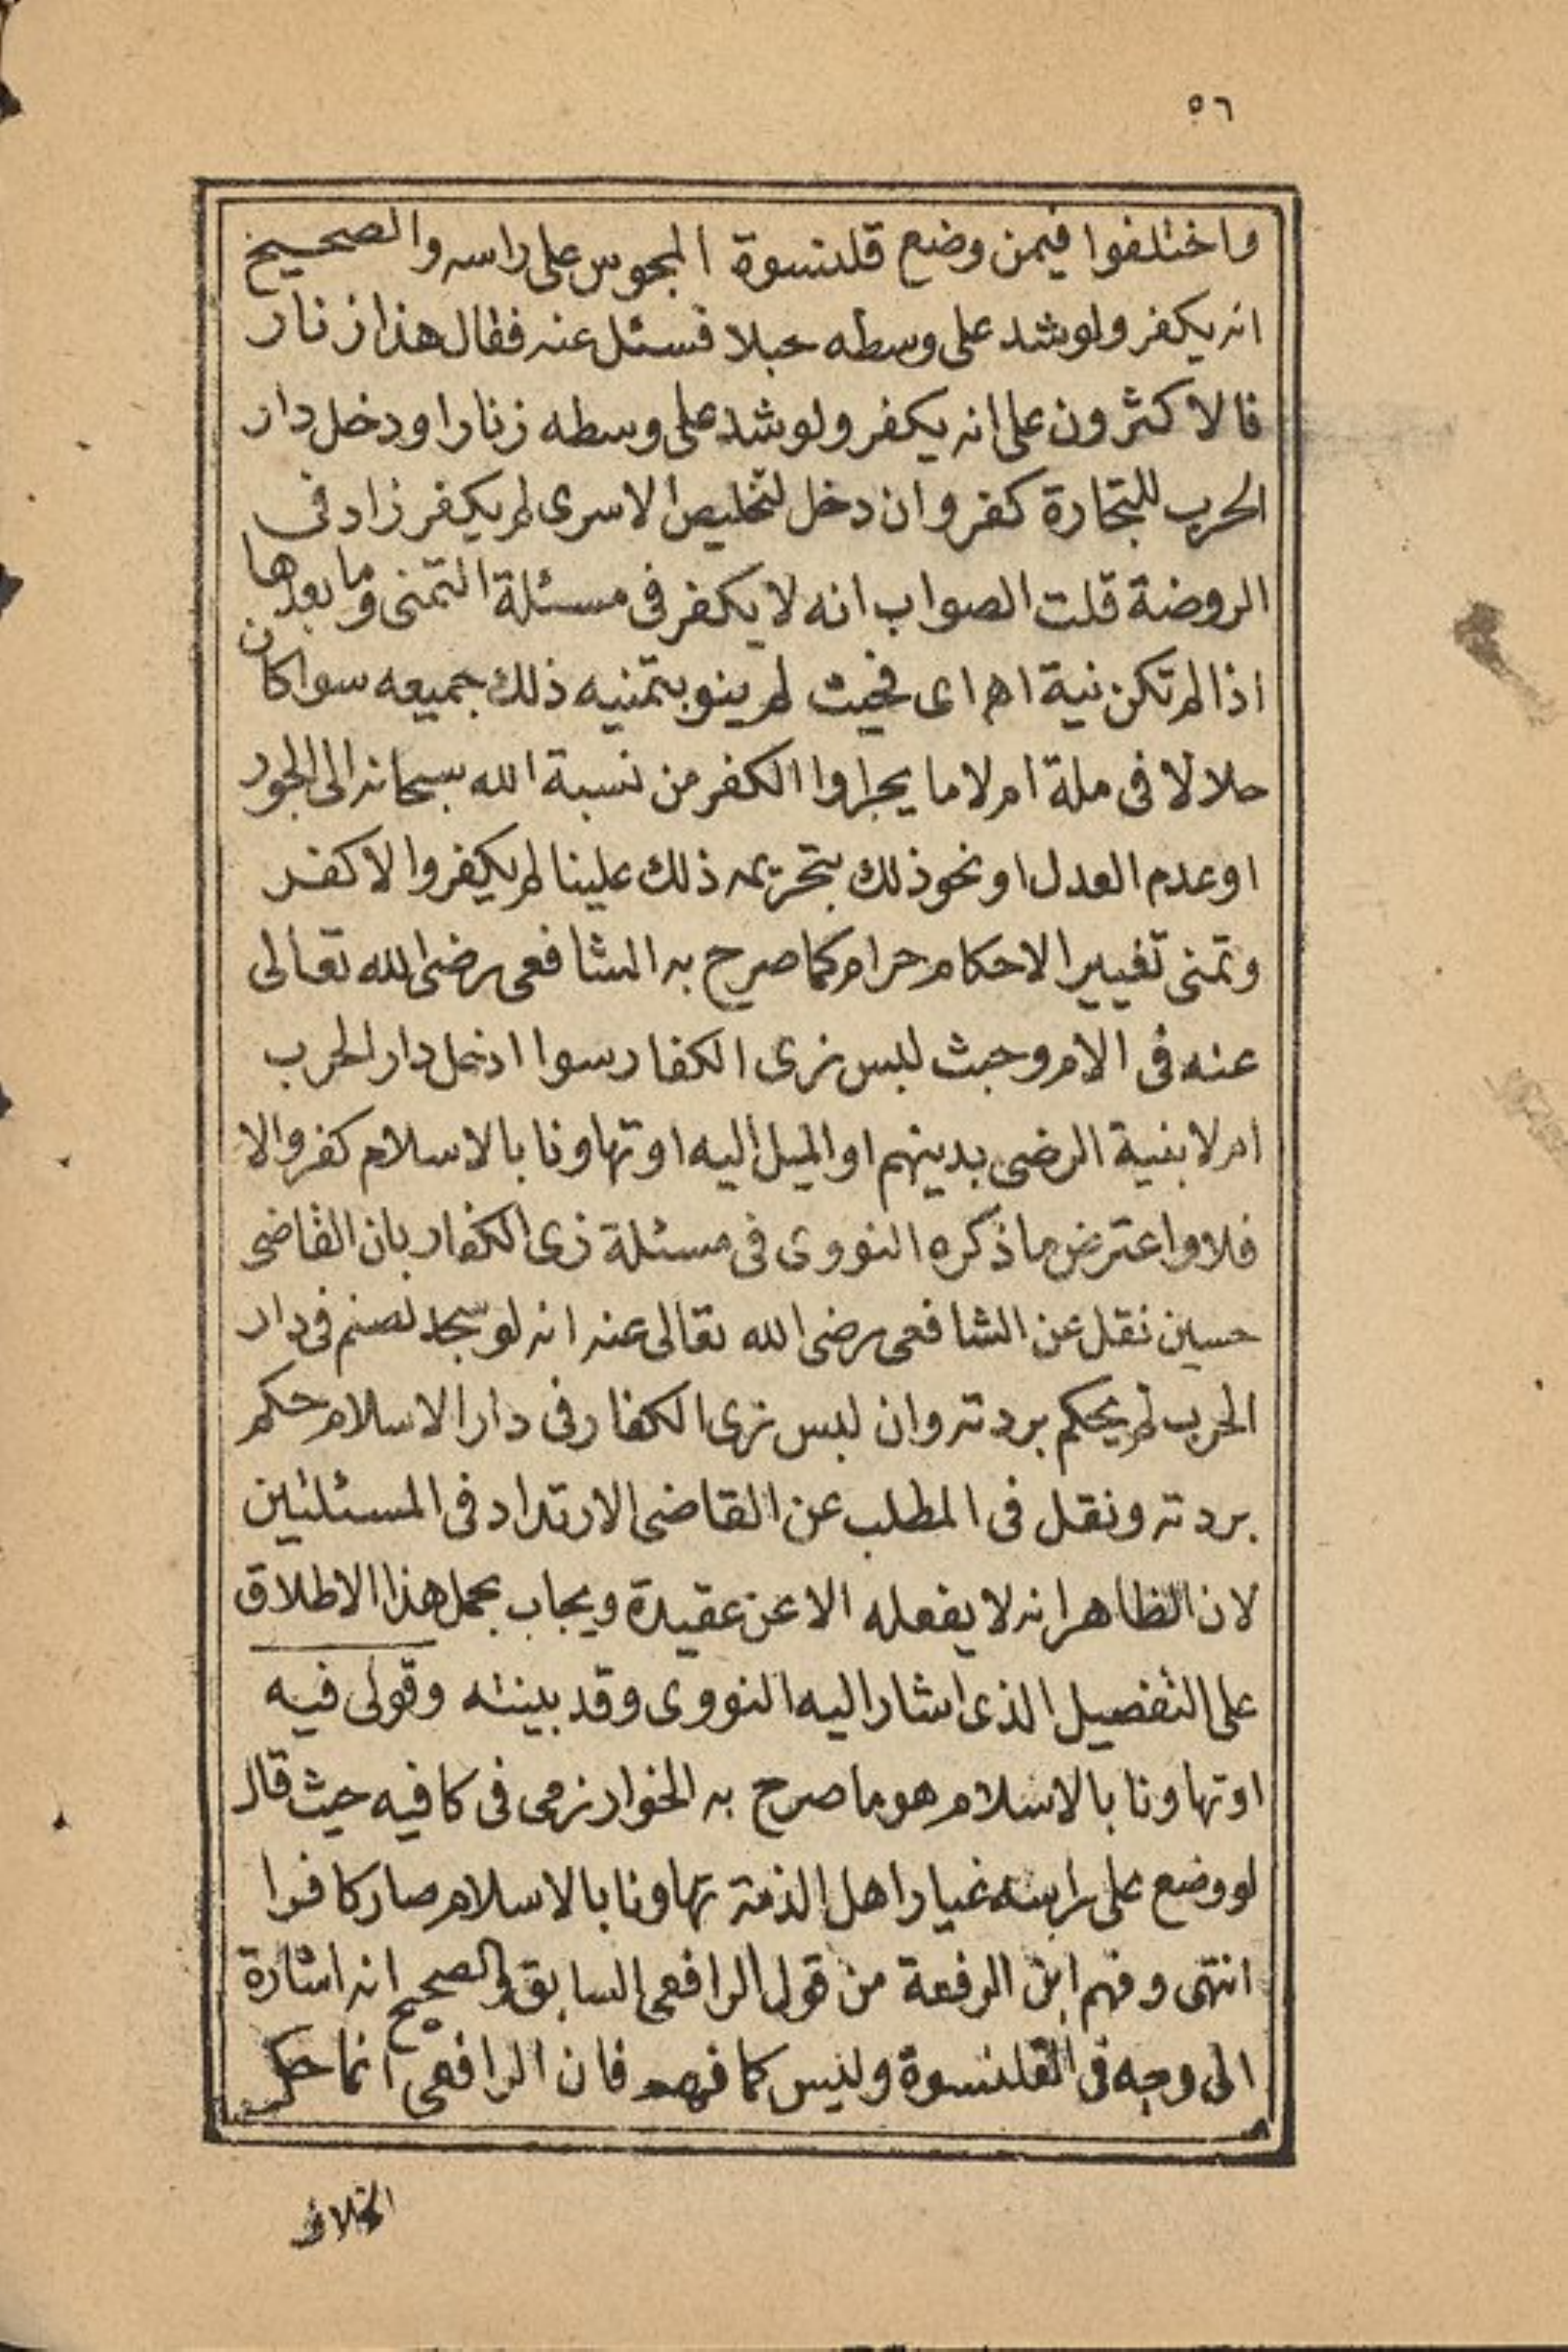 ٥٦
واختلفوا فيمن وضع قلنسوة المجوس على راسه والصحيح
انه يكفر ولو شد على وسطه حبلا فسئل عنه فقال هذا زنار
فالاكثرون على انه يكفر ولو شد على وسطه زنارا ودخل دار
الحرب للتجارة كفر وان دخل لتخليص الاسرى لم يكفر زاد في
الروضة قلت الصواب انه لا يكفر في مسئلة التمنى وما بعدها
اذا لم تكن نية اهـ اى فحيث لم ينو بتمنيه ذلك جميعه سوا كان
حلالا فى ملة ام لا ما يجراوا الكفر من نسبة الله سبحانه الى الجور
او عدم العدل او نحو ذلك بتحريمه ذلك علينا لم يكفر والا كفر
وتمنى تغيير الاحكام حرام كما صرح به الشافعى رضى الله تعالى
عنه فى الام وحيث لبس زى الكفار سوا ادخل دار الحرب
ام لا بنية الرضى بدينهم او الميل اليه او تهاونا بالاسلام كفر والا
فلا واعترض ما ذكره النووى فى مسئلة زى الكفار بان القاضى
حسين نقل عن الشافعى رضى الله تعالى عنه انه لو سجد لصنم فى دار
الحرب لم يحكم بردته وان لبس زى الكفار فى دار الاسلام حكم
بردته ونقل فى المطلب عن القاضى الارتداد فى المسئلتين
لان الظاهر انه لا يفعله الا عن عقيدة ويجاب بحمل هذا الاطلاق
على التفصيل الذى اشار اليه النووى وقد بينته وقولى فيه
او تهاونا بالاسلام هو ما صرح به الخوارزمى فى كافيه حيث قال
لو وضع على راسه غيار اهل الذمة تهاونا بالاسلام صار كافرا
انتهى وفهم ابن الرفعة من قول الرافعى السابق والصحيح انه اشارة
الى وجه فى القلنسوة وليس كما فهمه فان الرافعى انما حكى
الخلاف